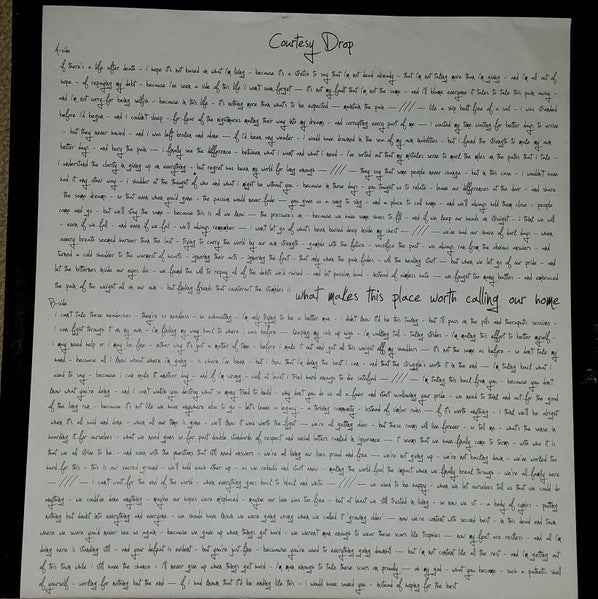 Courtesy Drop
A-side
if there's a life after death - i hope it's not based on what i'm living - because it's a stretch to say that i'm not dead already - that i'm not taking more than i'm giving - and i'm all out of
hope - of repaying my debt - because i've seen a side of this life i won't soon forget --- it's not my fault that i'm not the same - and i'll blame everyone it takes to take this pain away -
and i'm not sorry for being selfish - because in this life - it's nothing more than what's to be expected --- maintain the pain --- //// --- like a ship but free of a sail - i was stranded
before i'd begun - and i couldn't sleep - for fear of the nightmares making their way into my dreams - and corrupting every part of me --- i wasted my time waiting for better days to arrive
- but they never howed - and i was left broken and alone --- if i'd been any weaker - i would have drowned in the sea of my own inabilities - but i found the strength to make my own
better days - and bury the pain --- i finally see the difference - between what i want and what i need - i've sorted out that my mistakes serve to meet the miles on the paths that i take -
i understand the clarity in giving up on everything - but regret has been my world for long enough --- //// --- they say that some people never change - but in this case - i wouldn't have
had it any other way - i shudder at the thought of who and what i might be without you - because in these days - you taught us to relate - leave our differences at the door - and share
the same dreams - so that even when you're gone - the passion would never fade --- you gave us a way to sing - and a place to call home - and we'll always hold them close - people
come and go - but we'll stay the same - because this is all we know --- the pressure's on - because we have some shoes to fill - and if we keep our heads on straight - i think we will
- even if we fall - and even if we fail - we'll always remember --- i won't let go of what's been buried deep inside my chest --- //// --- we've had our share of dark days - when
every breath seemed heavier than the last - trying to carry the world by our own strength - gamble with the future - sacrifice the past - we always ran from the obvious answers - and
turned a cold shoulder to the warmest of hearts - ignoring their acts - ignoring the fact - that only when the pain fades - will the healing start --- but when we let go of our pride - and
let the bitterness inside our eyes die - we found the will to repay all of the debts we'd raised - and let passion lead - instead of aimless hate --- we fought too many battles - and embraced
the pain of the weight all on our own - but finding friends that counteract the stumbles is what makes this place worth calling our home
B-side
i can't take these headaches - they're so needless - so exhausting - i'm only trying to be a better man - i didn't know it'd be this taxing - but i'll pass on the pills and therapeutic sessions -
i can fight through it on my own - i'm finding my way back to where i was before --- keeping my chin up high - i'm walking tall - taking strides - i'm making this effort to better myself -
i may need help or i may be fine - either way it's just a matter of time - before i make it out and get all this weight off my shoulders --- it's not the same as before - so don't take my
hand - because all i know about where i'm going - is where i've been - but i know that i'm doing the best i can - and that the struggle's worth it in the end --- i'm taking back what i
used to say - because i can make it another day - and if i'm wrong - well at least i tried hard enough to die satisfied --- //// --- i'm taking this back from you - because you don't
know what you're doing - and i can't watch you destroy what so many tried to build - why don't you do us all a favor and start swallowing your pride - we need to think and act for the good
of the long run - because it's not like we have anywhere else to go - let's leave a legacy - a thriving community - instead of similar ruins --- if it's worth anything - i think we'll be alright
when it's all said and done - when all our time is gone - we'll know it was worth the fight --- we're all getting older - but these rooms will live forever - so tell me - what's the sense in
hoarding it for ourselves - what we need goes so far past double standards of respect and social ladders rooted in ignorance --- it seems that we have finally come to terms - with who it is
that we all strive to be - and even with the questions that still need answers - we're all living our lives proud and free --- we're not giving up - we're not backing down - we've worked too
hard for this - this is our sacred ground - we'll hold each other up - as we rebuild and start anew - making the world feel the impact when we finally break through - we're all family here
--- //// --- i can't wait for the end of the world - when everything goes back to black and white --- //// --- we used to be happy - when we let ourselves tell us that we could do
anything - we could've done anything - maybe our hopes were misplaced - maybe our love was too free - but at least we still trusted in living - so now we sit - a body of cynics - putting
nothing but doubt into everything and everyone - we should have known we were going wrong when we called it "growing older" --- now we're content with second best - in this dead end town
where we swore you'd never see us again - because we gave up when things got hard - we weren't man enough to wear these scars like trophies --- now my feet are restless - and all i'm
doing here is standing still - and your defeat is evident - but you're just fine - because you're used to everything going downhill --- but i'm not content like all the rest - and i'm getting out
of this town while i still have the chance - i'll never give up when things get hard - i'm man enough to take these scars on proudly --- oh my god - what you became - such a pathetic shell
of yourself - working for nothing but the end --- if i had known that it'd be ending like this - i would have saved you - instead of hoping for the best